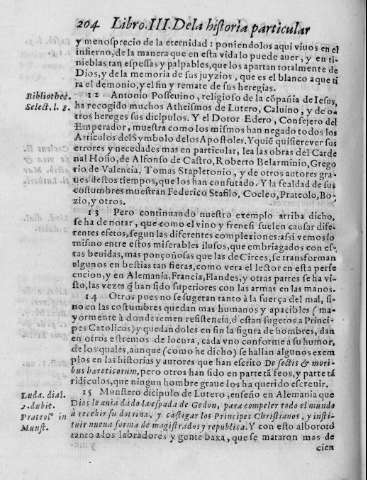 204 Libro. III. De la historia particular
y menosprecio de la eternidad: poniendolos aqui viuos en el
infierno, de la manera que en esta vida lo puede auer, y en ti-
nieblas tan espessas y palpables, que los apartan totalmente de
Dios, y de la memoria de sus juyzios, que es el blanco a que ti
ra el demonio, el fin y remate de sus heregias.
Bibliothec.
Select. l. 8.
12 Antonio Posseuino, religioso de la cõpañia de Iesus,
ha recogido muchos Atheismos de Lutero, Caluino, y de o-
tros hereges sus dicipulos. Y el Dotor Edero, Consejero del
Emperador, muestra como los mismos han negado todos los
Articulos del Symbolo de los Apostoles. Y quiē quisiere ver sus
errores y necedades mas en particular, lea las obras del Carde
nal Hosio, de Alfonso de Castro, Roberto Belarminio, Grego
rio de Valencia, Tomas Stapletonio, y de otros autores gra-
ues destos tiempos, que los han confutado. Y la fealdad de sus
costumbres muestran Federico Stafilo, Cocleo, Prateolo, Bo-
zio, y otros.
13 Pero continuando nuestro exemplo arriba dicho,
se ha de notar, que como el vino y frenesi suelen causar dife-
rentes efetos, segun las diferentes complexiones: assi vemos lo
mismo entre estos miserables ilusos, que embriagados con es-
tas beuidas, mas ponçoñosas que las de Circes, se transforman
algunos en bestias tan fieras, como vera el lector en esta perse
cucion, y en Alemania, Francia, Flandes, y otras partes se ha vi-
sto, las vezes q̃ han sido superiores con las armas en las manos.
14 Otros pues no se sugetan tanto à la fuerça del mal, si-
no en las costumbres quedan mas humanos y apacibles (ma-
yormente à donde temen resistencia, ò estan sugetos a Princi-
pes Catolicos) y quedan doles en fin la figura de hombres, dan
en otros estremos de locura, cada vno conforme a su humor,
de los quales, aunque (como he dicho) se hallan algunos exem
plos en las historias y autores que han escrito De sectis & mori-
bus hæreticorum, pero otros han sido en parte tã feos, y parte tã
ridiculos, que ningun hombre graue los ha querido escreuir.
Luda. dial.
2. dubit.
Prateol° in
Munst.
15 Munstero dicipulo de Lutero, enseño en Alemania que
Dios le auia dado la espada de Gedeon, para compeler todo el mundo
à recebir su dotrina, y castigar los Principes Christianos, y insti-
tuir nueua forma de magistrados y republica. Y con esto alboroto
tanto a los labradores y gente baxa, que se mataron mas de
cien